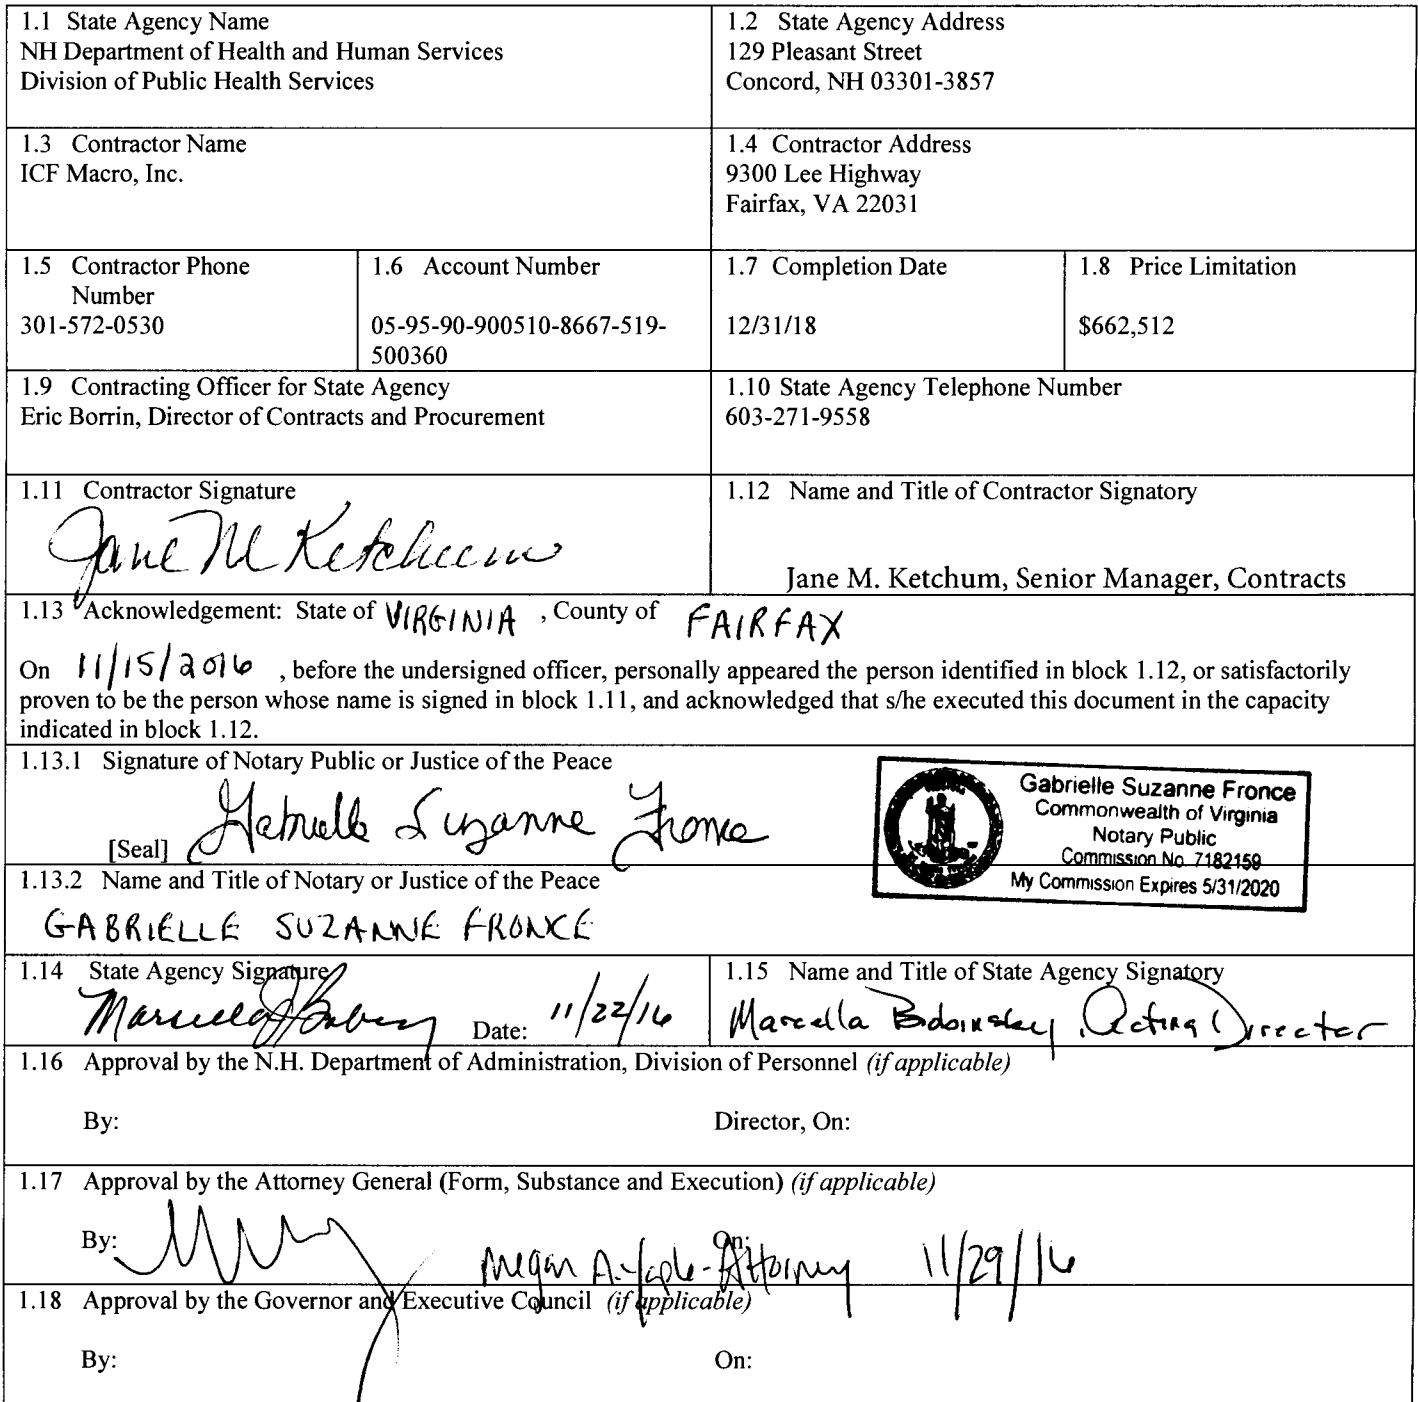 1.1 State Agency Name
NH Department of Health and Human Services
Division of Public Health Services
1.2 State Agency Address
129 Pleasant Street
Concord, NH 03301-3857
1.3 Contractor Name
ICF Macro, Inc.
1.4 Contractor Address
9300 Lee Highway
Fairfax, VA 22031
1.5 Contractor Phone
Number
301-572-0530
1.6 Account Number
05-95-90-900510-8667-519-
500360
1.7 Completion Date
12/31/18
1.8 Price Limitation
$662,512
1.9 Contracting Officer for State Agency
Eric Borrin, Director of Contracts and Procurement
1.10 State Agency Telephone Number
603-271-9558
1.11 Contractor Signature
Jane M Ketchum
1.12 Name and Title of Contractor Signatory
Jane M. Ketchum, Senior Manager, Contracts
1.13 Acknowledgement: State of VIRGINIA , County of FAIRFAX
On 11/15/2016 , before the undersigned officer, personally appeared the person identified in block 1.12, or satisfactorily
proven to be the person whose name is signed in block 1.11, and acknowledged that s/he executed this document in the capacity
indicated in block 1.12.
1.13.1 Signature of Notary Public or Justice of the Peace
[Seal] Gabrielle Suzanne Fronce
Gabrielle Suzanne Fronce
Commonwealth of Virginia
Notary Public
Commission No. 7182159
My Commission Expires 5/31/2020
1.13.2 Name and Title of Notary or Justice of the Peace
GABRIELLE SUZANNE FRONCE
1.14 State Agency Signature
Marcella Date: 11/22/16
1.15 Name and Title of State Agency Signatory
Marcella Bobinsky, Acting Director
1.16 Approval by the N.H. Department of Administration, Division of Personnel (if applicable)
By: Director, On:
1.17 Approval by the Attorney General (Form, Substance and Execution) (if applicable)
By: Megan A. Yaple - Attorney On: 11/29/16
1.18 Approval by the Governor and Executive Council (if applicable)
By: On: